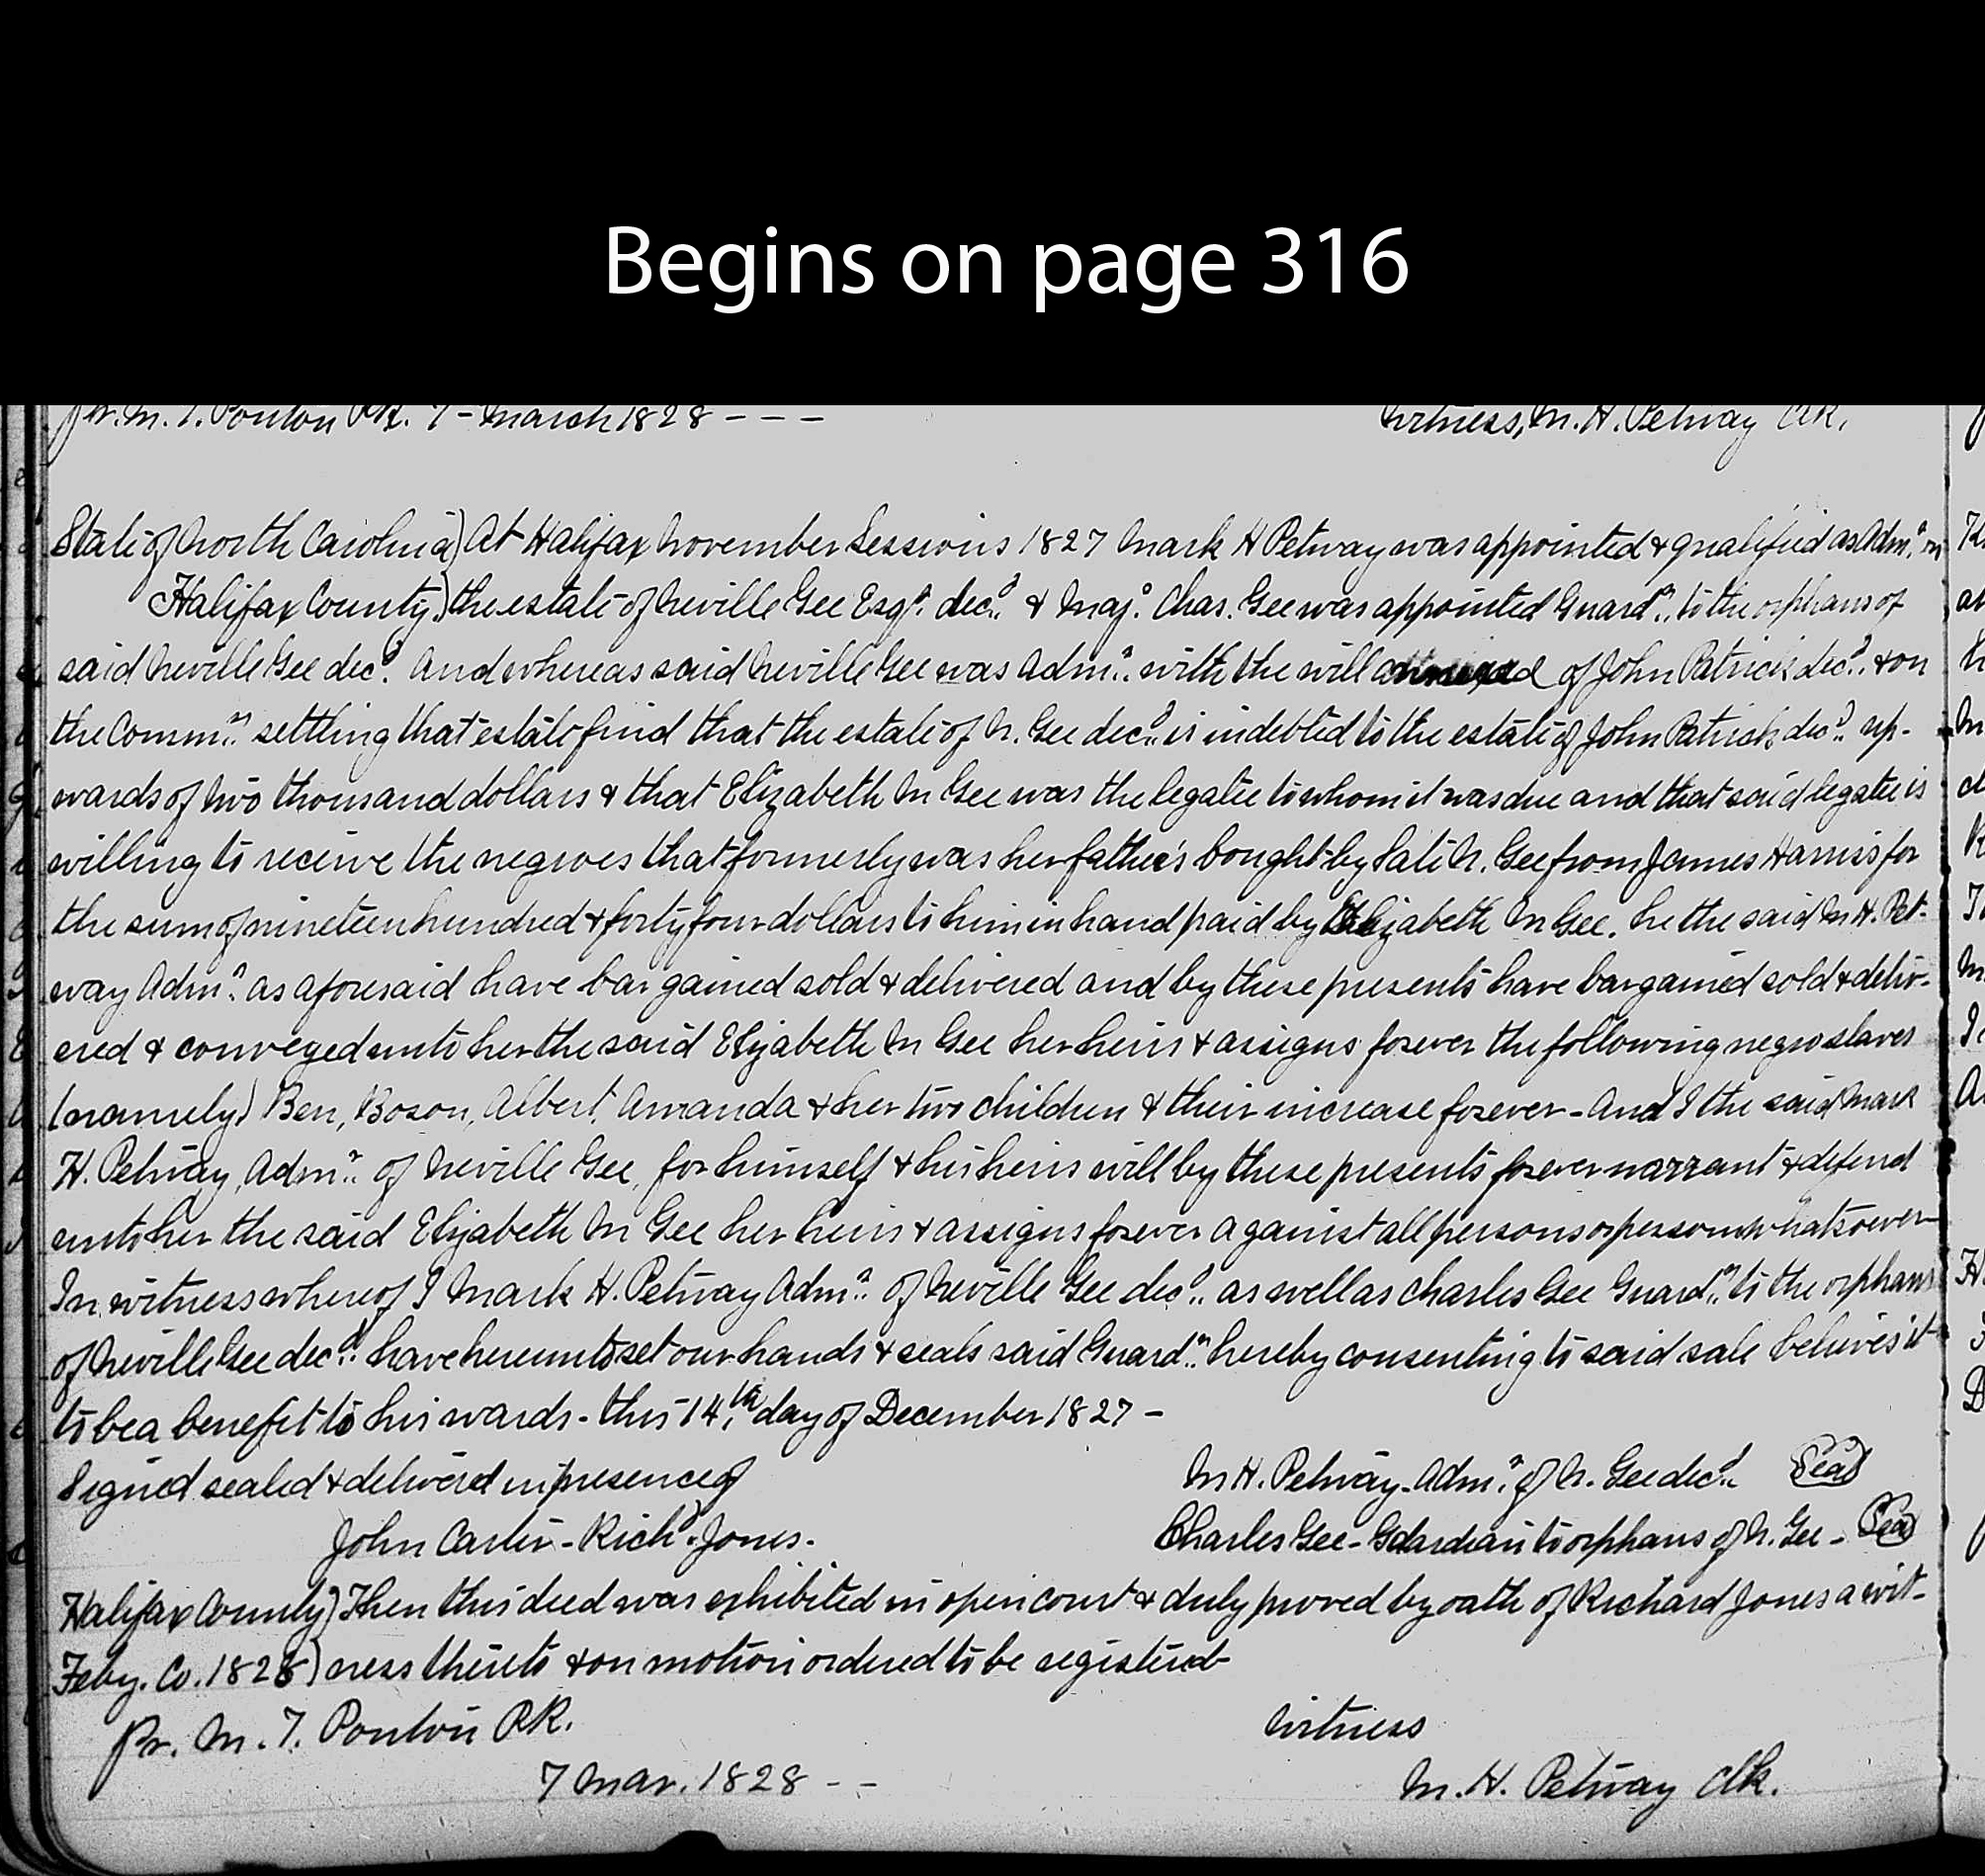 Begins on page 316
pr. M. T. Ponton P.R. 7 - March 1828 - - -
Witness, M. H. Petway Clk.
State of North Carolina) At Halifax November Sessions 1827 Mark H Petway was appointed & qualified as Admr. on
Halifax County.) the estate of Neville Gee Esqr. decd. & Majr. Chas. Gee was appointed Guardn. to the orphans of
said Neville Gee decd. And whereas said Neville Gee was Admr. with the will annexed of John Patrick decd. & on
the Commrs. settling that estate find that the estate of N. Gee decd. is indebted to the estate of John Patrick decd. up-
wards of two thousand dollars & that Elizabeth M Gee was the legatee to whom it was due and that said legatee is
willing to receive the negroes that formerly was her father's bought by late N. Gee from James Harris for
the sum of nineteen hundred & forty four dollars to him in hand paid by Elizabeth M Gee. he the said M H. Pet-
way Admr. as aforesaid have bargained sold & delivered and by these presents have bargained sold & deliv-
ered & conveyed unto her the said Elizabeth M Gee her heirs & assigns forever the following negro slaves
(namely) Ben, Boson, Albert, Amanda & her two children & their increase forever - And I the said Mark
H. Petway, Admr. of Neville Gee, for himself & his heirs will by these presents forever warrant & defend
unto her the said Elizabeth M Gee her heirs & assigns forever against all persons or person whatsoever
In witness whereof I Mark H. Petway Admr. of Neville Gee decd. as well as Charles Gee Guardn. to the orphans
of Neville Gee decd. have hereunto set our hands & seals said Guardn. hereby consenting to said sale believes it
to be a benefit to his wards - this 14th. day of December 1827 -
Signed sealed & delivered in presence of
M H. Petway. Admr. of N. Gee decd. Seal
John Carter - Richd. Jones.
Charles Gee - Guardian to orphans of N. Gee - Seal
Halifax County) Then this deed was exhibited in open court & duly proved by oath of Richard Jones a wit-
Feby. Co. 1828) ness thereto & on motion ordered to be registered
Pr. M. T. Ponton P.R.
Witness
7 Mar. 1828 - -
M. H. Petway Clk.